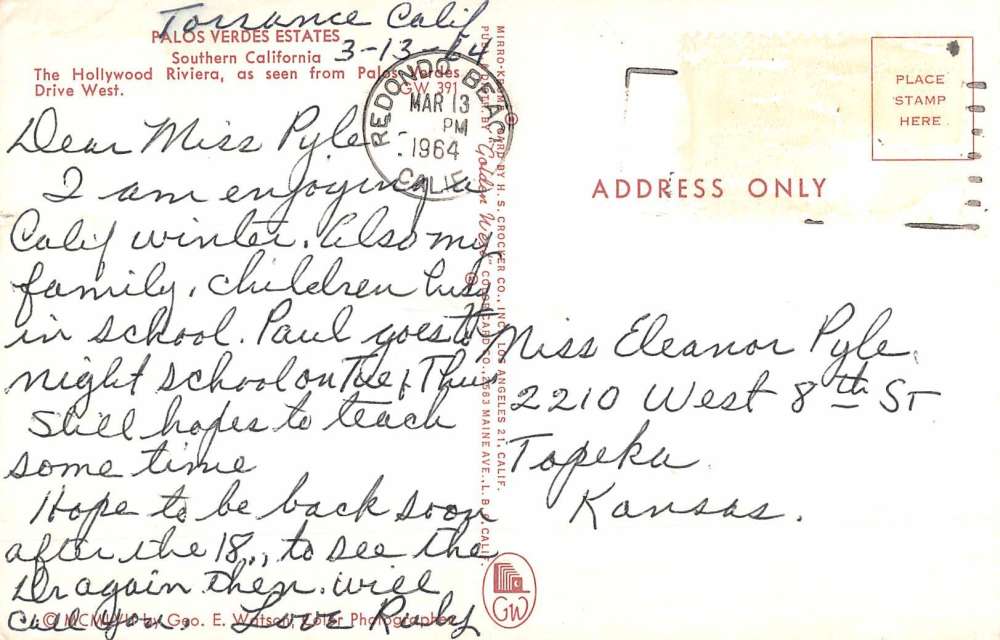 Torrance Calif
3-13-64
PALOS VERDES ESTATES
Southern California
The Hollywood Riviera, as seen from Palos Verdes
Drive West.
GW 391
REDONDO BEACH
MAR 13
PM
1964
CALIF.
Dear Miss Pyle
I am enjoying a
Calif winter. Also my
family, children busy
in school. Paul goes to
night school on Tue & Thur
Still hopes to teach
some time
Hope to be back soon
after the 18., to see the
Dr again then will
call you. Love Ruby
© MCMLVII by Geo. E. Watson, Color Photographer
MIRRO-KROME CARD BY H. S. CROCKER CO., INC., LOS ANGELES 21, CALIF.
PUBLISHED BY "Golden West" COLOR CARD CO., 2563 MAINE AVE., L. B. 6, CALIF.
GW
PLACE
STAMP
HERE
ADDRESS ONLY
Miss Eleanor Pyle
2210 West 8th St
Topeka
Kansas.